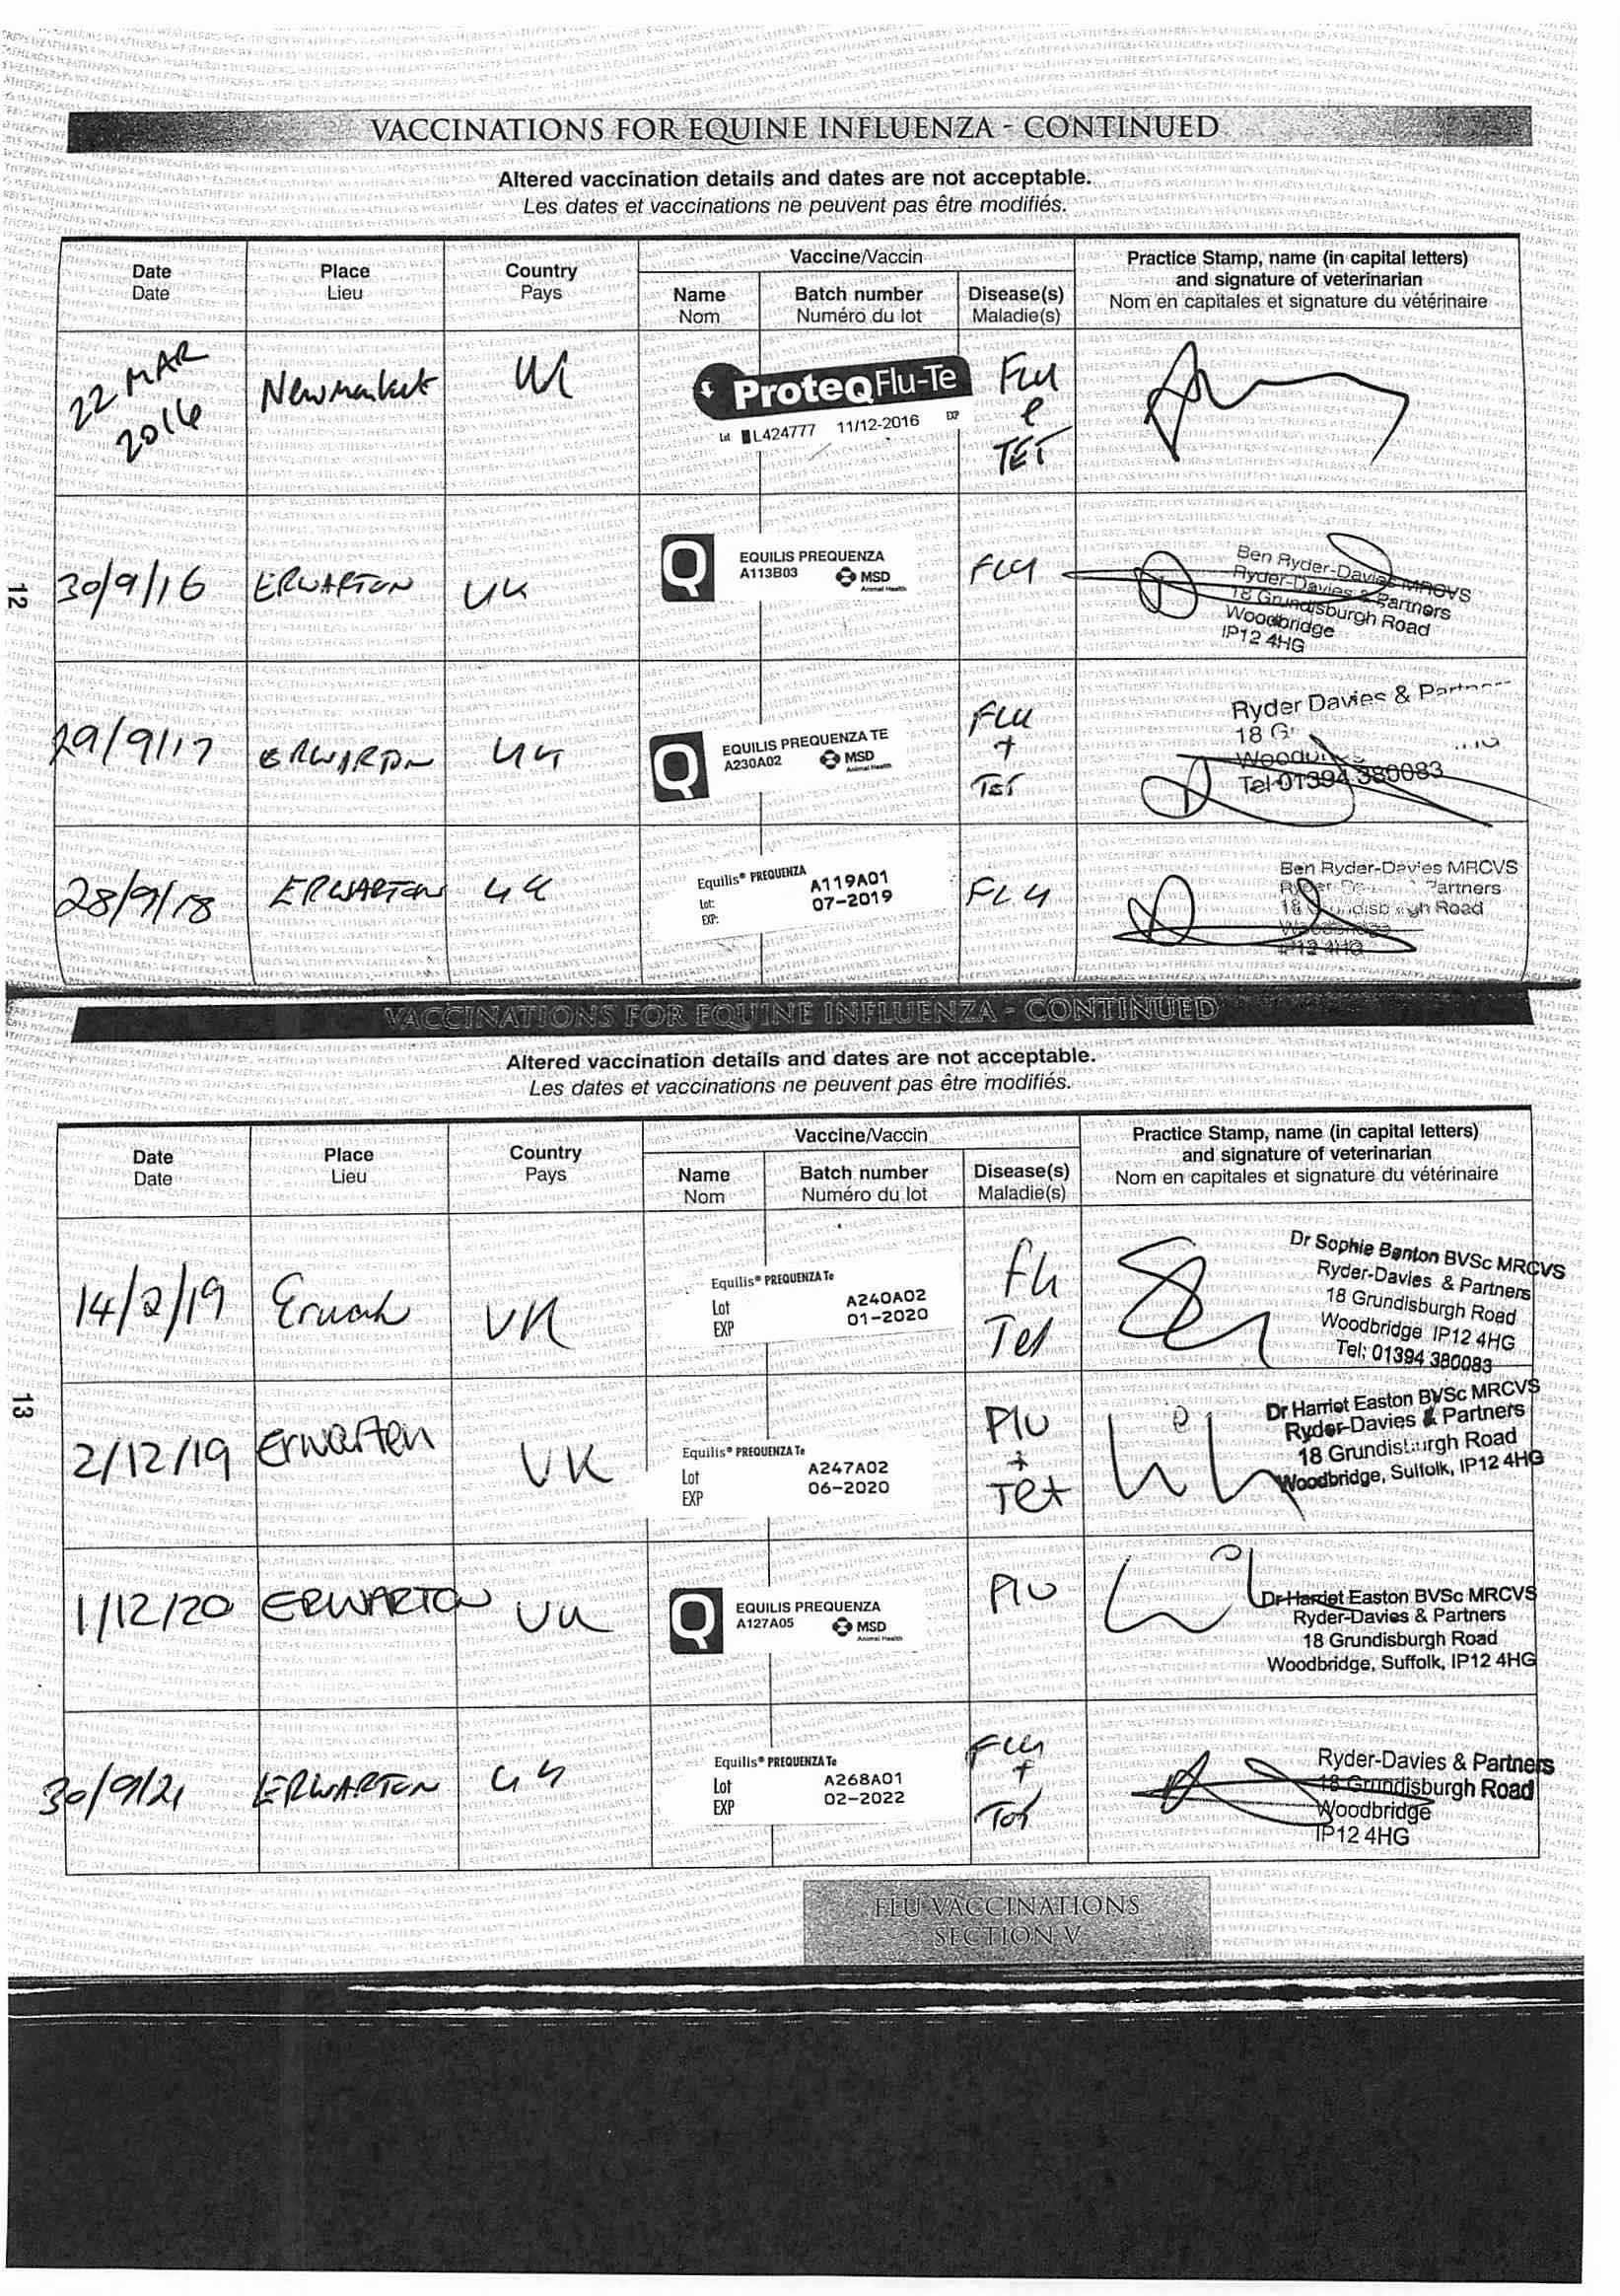 VACCINATIONS FOR EQUINE INFLUENZA - CONTINUED
Altered vaccination details and dates are not acceptable.
Les dates et vaccinations ne peuvent pas être modifiés.
Date
Date
Place
Lieu
Country
Pays
Vaccine/Vaccin
Name
Nom
Batch number
Numéro du lot
Disease(s)
Maladie(s)
Practice Stamp, name (in capital letters)
and signature of veterinarian
Nom en capitales et signature du vétérinaire
22 MAR
2016
Newmarket
UK
ProteqFlu-Te
Lot L424777 11/12-2016 EXP
Flu
e
TET
12
30/9/16
ERWARTON
UK
Q
EQUILIS PREQUENZA
A113B03
MSD
Animal Health
Flu
Ben Ryder-Davies MRCVS
Ryder-Davies & Partners
18 Grundisburgh Road
Woodbridge
IP12 4HG
29/9/17
ERWARTON
UK
Q
EQUILIS PREQUENZA TE
A230A02
MSD
Animal Health
FLU
+
Tet
Ryder Davies & Partners
18 G
Tel 01394 380083
28/9/18
ERWARTON
UK
Equilis® PREQUENZA
Lot: A119A01
EXP: 07-2019
FLU
Ben Ryder-Davies MRCVS
Partners
18 Road
IP12 4HG
VACCINATIONS FOR EQUINE INFLUENZA - CONTINUED
Altered vaccination details and dates are not acceptable.
Les dates et vaccinations ne peuvent pas être modifiés.
Date
Date
Place
Lieu
Country
Pays
Vaccine/Vaccin
Name
Nom
Batch number
Numéro du lot
Disease(s)
Maladie(s)
Practice Stamp, name (in capital letters)
and signature of veterinarian
Nom en capitales et signature du vétérinaire
14/2/19
UK
Equilis® PREQUENZA Te
Lot A240A02
EXP 01-2020
Flu
Tet
Dr Sophie Banton BVSc MRCVS
Ryder-Davies & Partners
18 Grundisburgh Road
Woodbridge IP12 4HG
Tel: 01394 380083
13
2/12/19
Erwarton
UK
Equilis® PREQUENZA Te
Lot A247A02
EXP 06-2020
Flu
+
Tet
Dr Harriet Easton BVSc MRCVS
Ryder-Davies & Partners
18 Grundisburgh Road
Woodbridge, Suffolk, IP12 4HG
1/12/20
ERWARTON
UK
Q
EQUILIS PREQUENZA
A127A05
MSD
Animal Health
Flu
Dr Harriet Easton BVSc MRCVS
Ryder-Davies & Partners
18 Grundisburgh Road
Woodbridge, Suffolk, IP12 4HG
30/9/21
ERWARTON
UK
Equilis® PREQUENZA Te
Lot A268A01
EXP 02-2022
Flu
+
Tet
Ryder-Davies & Partners
18 Grundisburgh Road
Woodbridge
IP12 4HG
FLU VACCINATIONS
SECTION V